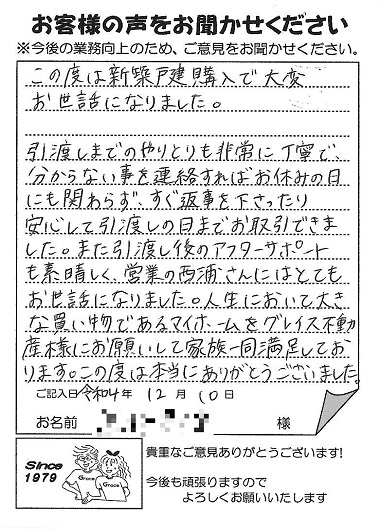 お客様の声をお聞かせください
※今後の業務向上のため、ご意見をお聞かせください。
この度は新築戸建購入で大変
お世話になりました。
引渡しまでのやりとりも非常に丁寧で、
分からない事を連絡すればお休みの日
にも関わらず、すぐ返事を下さったり
安心して引渡しの日までお取引できま
した。また引渡し後のアフターサポート
も素晴しく、営業の西浦さんにはとても
お世話になりました。人生において大き
な買い物であるマイホームをグレイス不動
産様にお願いして家族一同満足してお
ります。この度は本当にありがとうございました。
ご記入日 令和4年 12月 10日
お名前 様
Since
1979
Grace
Grace
貴重なご意見ありがとうございます!
今後も頑張りますので
よろしくお願いいたします